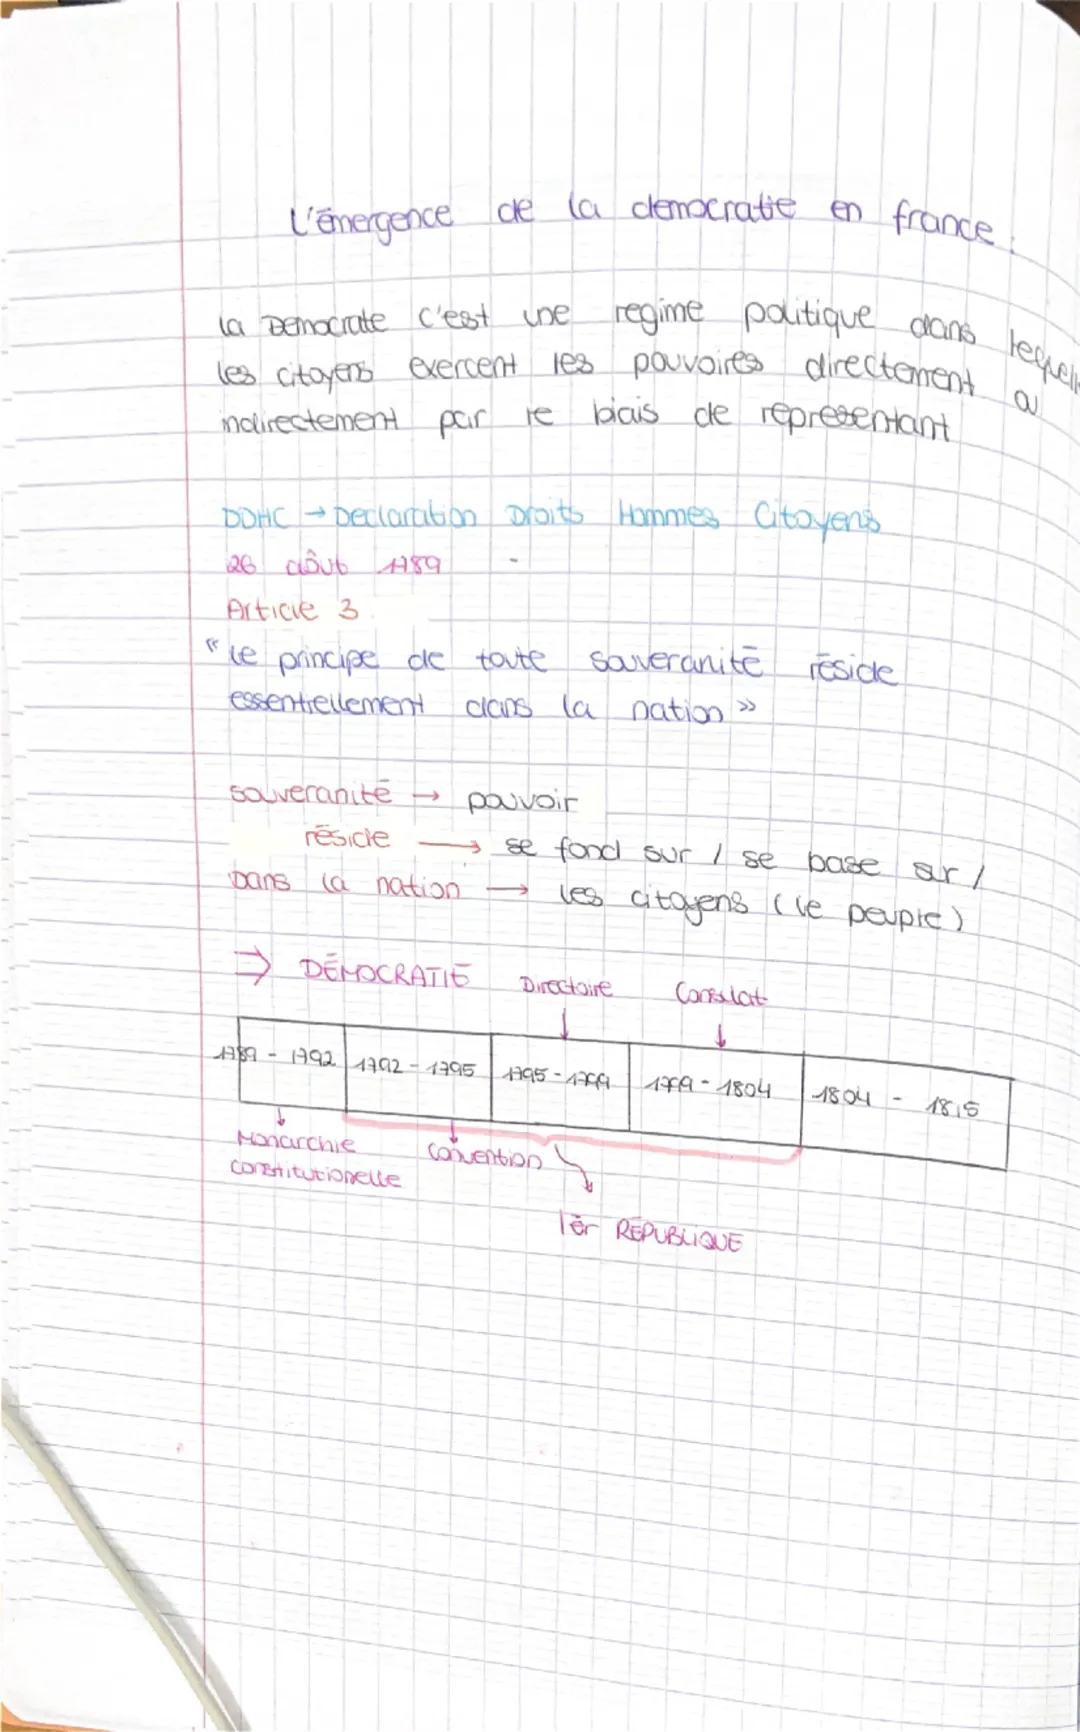 L'émergence de la democratie en france.
la Democratie c'est une regime politique dans lequel
les citoyens exercent les pouvoires directement ou
indirectement par le biais de representant
DDHC → Declaration Droits Hommes Citoyens
26 août 1789
Article 3
"le principe de toute souveranité réside
essentiellement dans la nation »
souveranité → pouvoir
réside → se fond sur / se base sur /
Dans la nation → les citoyens (le peuple)
⇒ DÉMOCRATIE Directoire Consulat
1789 - 1792 1792 - 1795 1795 - 1799 1799 - 1804 1804 - 1815
Monarchie Convention
constitutionelle
1ér RÉPUBLIQUE